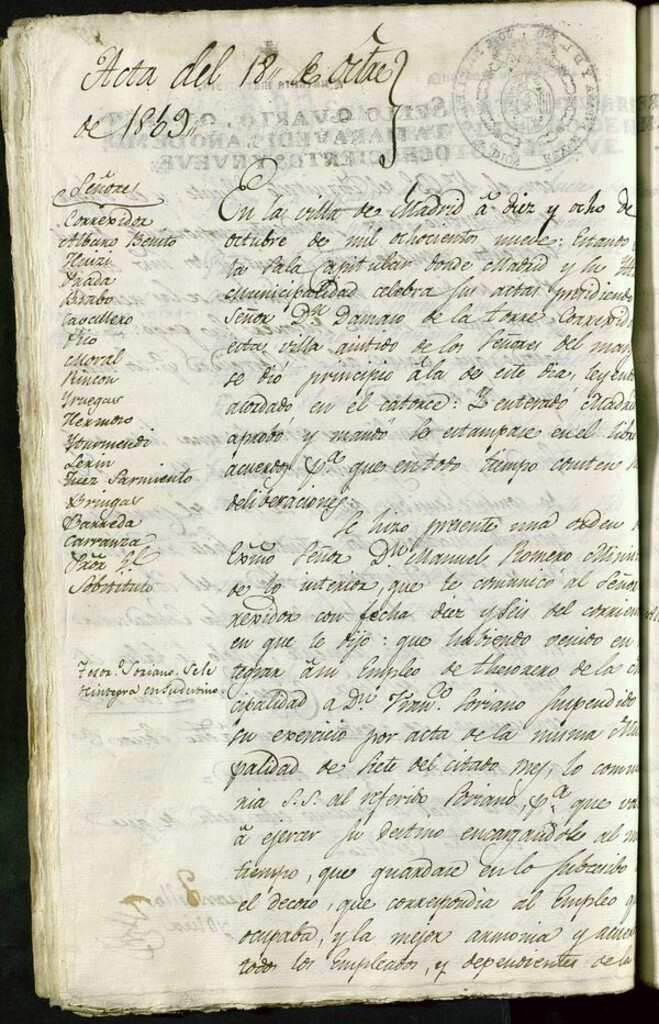 Acta del 18,, de Octre
de 1809,,
Señores
Correxidor
Albaro Benito
Huizi
Prada
Cavallero
Pico
Moral
Rincon
Yruegas
Hermoso
Yturmendi
Lerin
Juez Sarmiento
Bringas
Barreda
Carranza
Pror Gl.
Sobstituto
En la villa de Madrid â diez y ocho de
octubre de mil ochocientos nueve: Estando
la Sala Capitular donde Madrid y su
Municipalidad celebra sus actas presidiendo
Señor Dn. Damaso de la Torre Correxid
esta villa asistido de los Señores del mar
se dió principio â la de este dia, leyendo
acordado en el catorce: Y enterado Madrid
aprobó y mandó se estampase en el libro
acuerdos pa. que en todo tiempo consten
deliberaciones.
Se hizo presente una orden
Exmo. Señor Dn. Manuel Romero Minis
de lo interior, que le comunicó al Señor
rexidor con fecha diez y seis del corrien
en que le dijo: que habiendo venido en
Tesoro. Soriano. Se le
reintegra en su destino.
tegrar âsu Empleo de thesorero de la
cipalidad a Dn. Franco. Soriano suspendido
su exercicio por acta de la misma Mu
palidad de siete del citado mes, lo comu
nia S.S. al referido Soriano, pa. que
â ejercer su destino encargandole al
tiempo, que guardase en lo subcesibo
el decoro, que correspondia al Empleo q
ocupaba, y la mejor armonia y acuer
todos los Empleados, y dependientes de la